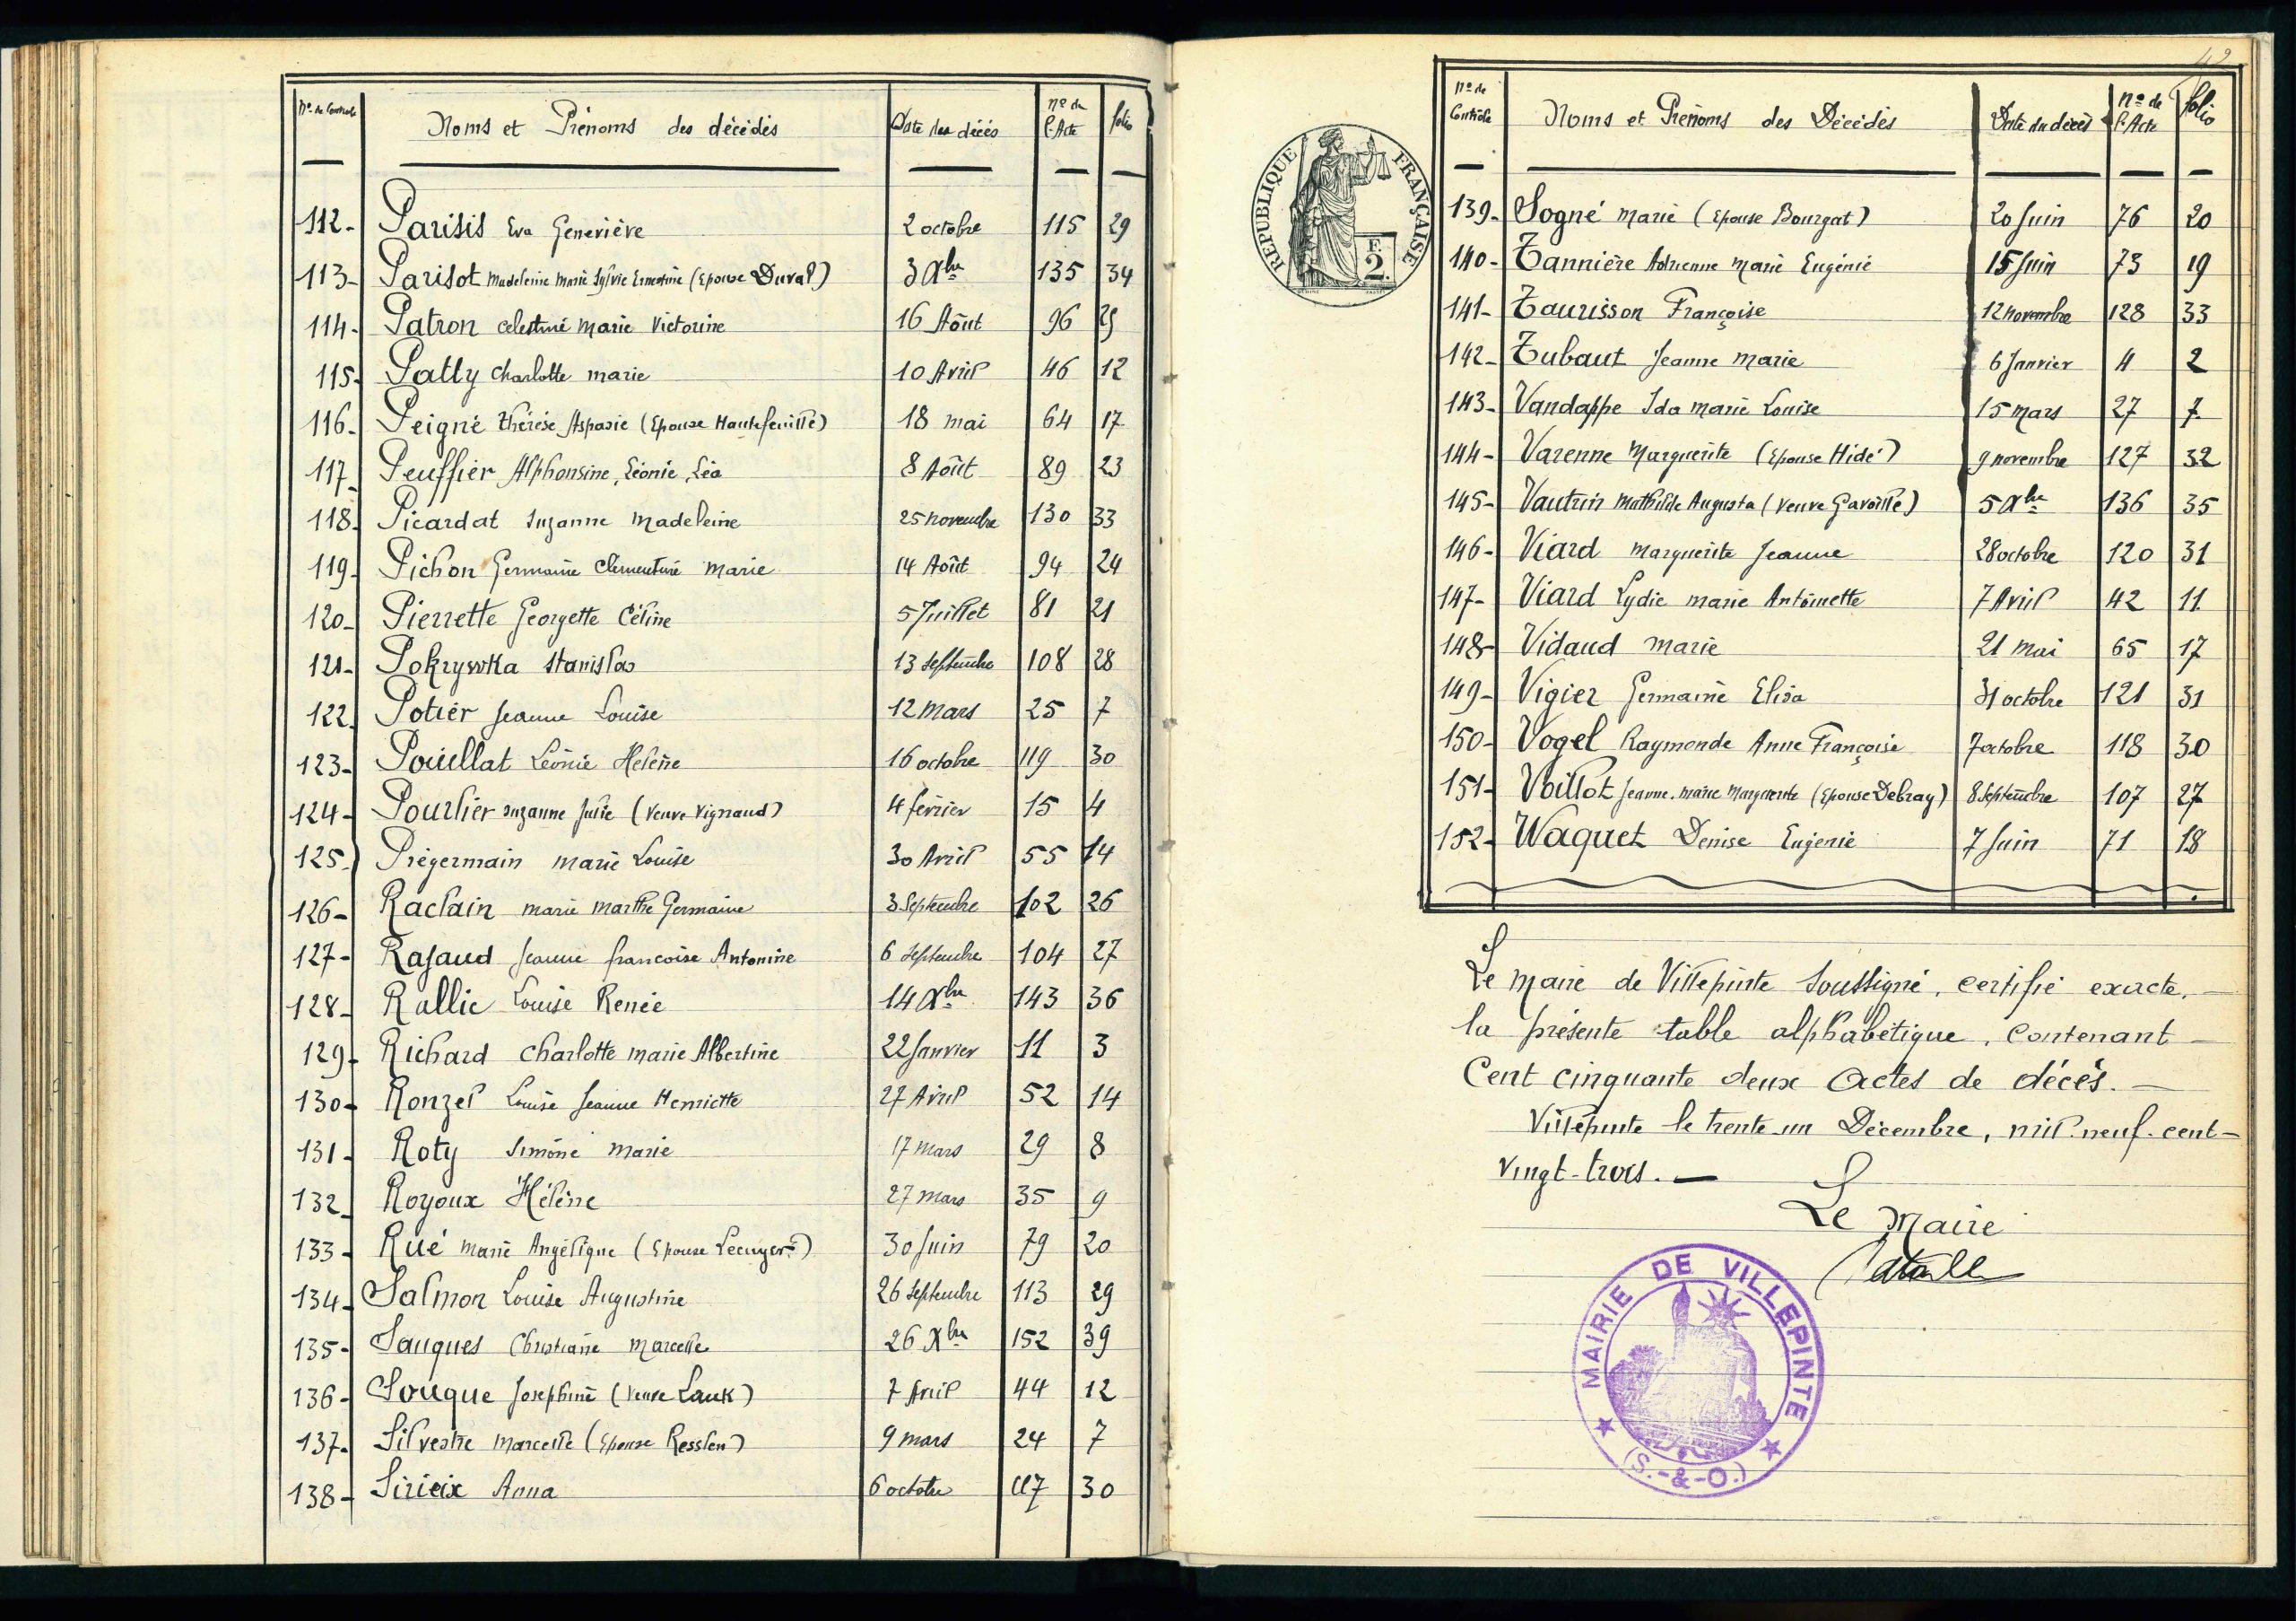 N° de Contrôle Noms et Prénoms des décédés Date des décés N° de l'Acte folio
112- Parisis Eva Geneviève 2 octobre 115 29
113- Parisot Madeleine Marie Sylvie Ernestine (Epouse Duval) 3 Xbre 135 34
114- Patron Celestine Marie Victorine 16 Août 96 25
115- Patty Charlotte marie 10 Avril 46 12
116- Peigné Thérèse Aspasie (Epouse Hautefeuille) 18 mai 64 17
117- Peuffier Alphonsine, Léonie, Léa 8 Août 89 23
118- Picardat Suzanne Madeleine 25 novembre 130 33
119- Pichon Germaine Clementine Marie 14 Août 94 24
120- Pierrette Georgette Céline 5 Juillet 81 21
121- Pokrywka Stanislas 13 Septembre 108 28
122- Potier Jeanne Louise 12 Mars 25 7
123- Pouillat Léonie Hélène 16 octobre 119 30
124- Pourlier Suzanne Julie (Veuve Vignaud) 4 février 15 4
125- Prégermain Marie Louise 30 Avril 55 14
126- Raclain marie marthe Germaine 3 Septembre 102 26
127- Rajaud Jeanne francoise Antonine 6 Septembre 104 27
128- Rallic Louise Renée 14 Xbre 143 36
129- Richard Charlotte marie Albertine 22 Janvier 11 3
130- Ronzel Louise Jeanne Henriette 27 Avril 52 14
131- Roty Simone Marie 17 mars 29 8
132- Royoux Hélène 27 mars 35 9
133- Rué Marie Angélique (Epouse Lecuyer) 30 Juin 79 20
134- Salmon Louise Augustine 26 Septembre 113 29
135- Sauques Christiane Marcelle 26 Xbre 152 39
136- Souque Josephine (Veuve Lauk) 7 Avril 44 12
137- Silvestre Marcelle (Epouse Resslen) 9 mars 24 7
138- Sirieix Anna 6 octobre 117 30
N° de Contrôle Noms et Prénoms des Décédés Date du décès N° de l'Acte folio
RÉPUBLIQUE FRANÇAISE
F. 2.
139- Sogné Marie (Epouse Bourgat) 20 Juin 76 20
140- Tannière Adrienne Marie Eugénie 15 Juin 73 19
141- Taurisson Françoise 12 novembre 128 33
142- Tubaut Jeanne Marie 6 Janvier 4 2
143- Vandappe Ida Marie Louise 15 mars 27 7
144- Varenne Marguerite (Epouse Hidé) 9 novembre 127 32
145- Vautrin Mathilde Augusta (Veuve Gavoille) 5 Xbre 136 35
146- Viard Marguerite Jeanne 28 octobre 120 31
147- Viard Lydie Marie Antoinette 7 Avril 42 11
148- Vidaud Marie 21 Mai 65 17
149- Vigier Germaine Elisa 31 octobre 121 31
150- Vogel Raymonde Anne Françoise 7 octobre 118 30
151- Voillot Jeanne. Marie Marguerite (Epouse Debray) 8 Septembre 107 27
152- Waquet Denise Eugenie 7 Juin 71 18
Le Maire de Villepinte Soussigné, certifie exacte,
la présente table alphabétique, Contenant
Cent cinquante deux Actes de décès.
Villepinte le trente-un Décembre, mil. neuf. cent-
vingt-trois.
Le Maire
MAIRIE DE VILLEPINTE
(S.-&-O.)